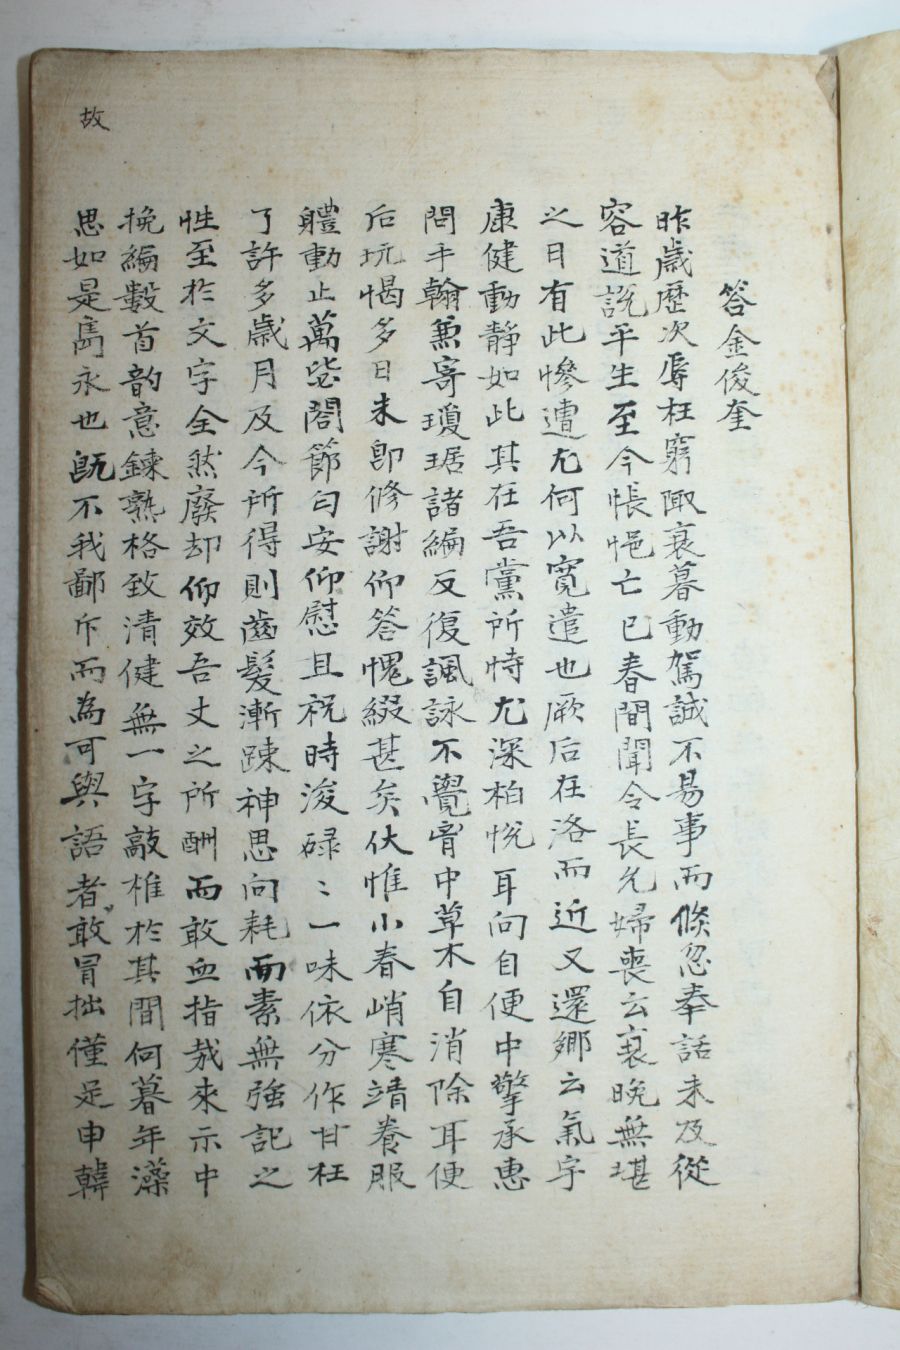 答金俊奎
昨歲歷次辱枉窮陬衰暮動駕誠不易事而倏忽奉話未及從
容道說平生至今悵悒亡已春間聞令長允婦喪云衰晩無堪
之日有此慘遭尤何以寬遣也厥后在洛而近又還鄉云氣字
康健動靜如此其在吾黨所恃尤深柏悅耳向自便中擎承惠
問手翰兼寄瓊琚諸編反復諷詠不覺胷中草木自消除耳便
后玩愒多日未卽修謝仰答愧綴甚矣伏惟小春峭寒靖養服
軆動止萬毖閤節勻安仰慰且祝時浚碌〻一味依分作甘枉
了許多歲月及今所得則齒髮漸踈神思向耗而素無強記之
性至於文字全然廢却仰效吾丈之所酬而敢血指哉來示中
挽編數首韵意鍊熟格致清健無一字敲椎於其間何暮年藻
思如是雋永也旣不我鄙斥而為可與語者敢冒拙僅足申韓
故